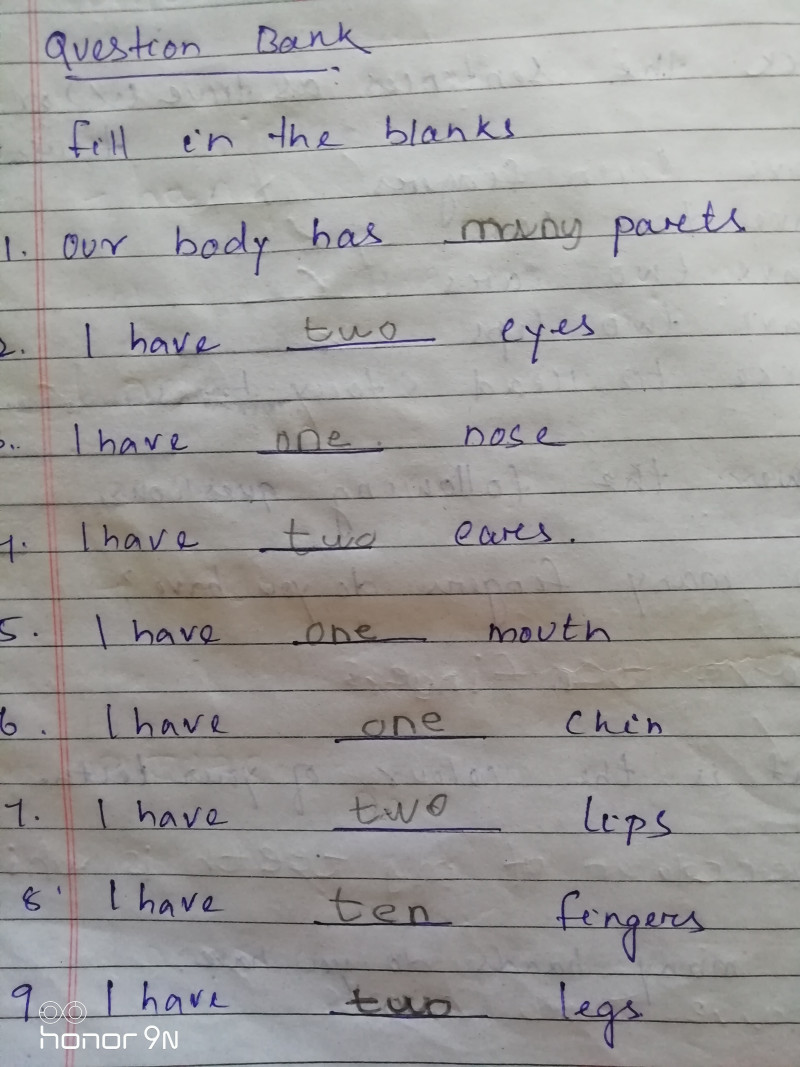 Question Bank
fill in the blanks
1. our body has many parts
2. I have two eyes
3. I have one nose
4. I have two ears.
5. I have one mouth
6. I have one chin
7. I have two lips
8. I have ten fingers
9 I have two legs
honor 9N